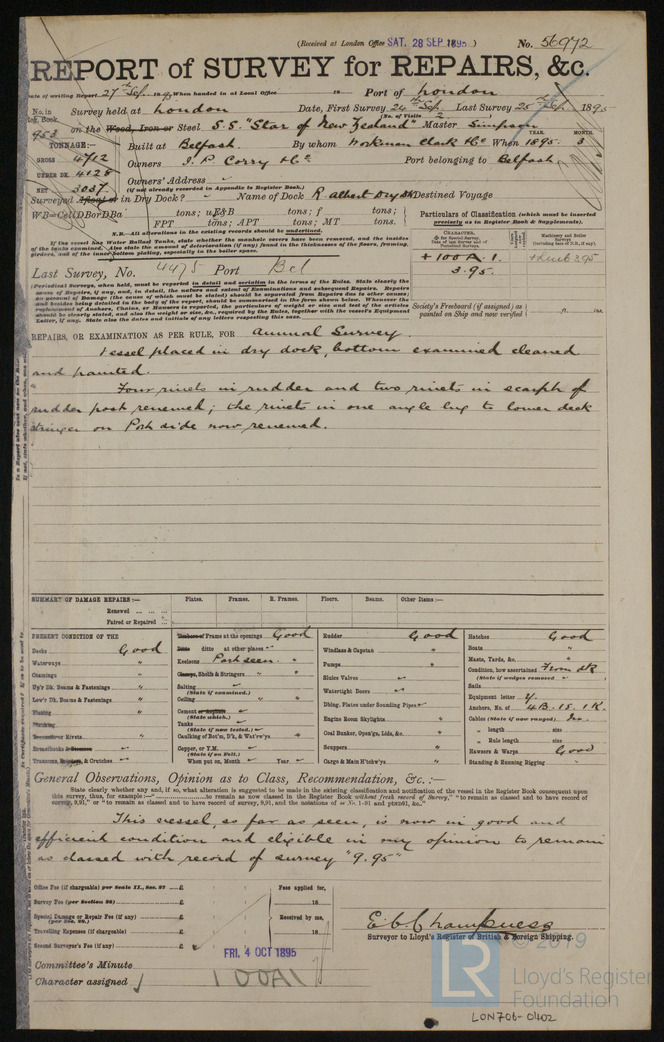 (Received at London Office SAT. 28 SEP 1895) No. 56972
REPORT of SURVEY for REPAIRS, &c.
Date of writing Report 27th Sep. When handed in at Local Office Port of London
No. in Reg. Book. Survey held at London Date, First Survey 24th Sep. Last Survey 25th Sep. 1895
(No. of Visits 2)
953 on the Wood, Iron or Steel S.S. "Star of New Zealand" Master Simpson
TONNAGE:— Built at Belfast By whom Workman Clark & Co When 1895. 3
YEAR. MONTH.
GROSS 4712 Owners J. P. Corry & Co Port belonging to Belfast
UNDER DK. 4128 Owners' Address
(if not already recorded in Appendix to Register Book.)
NET 3037
Surveyed Afloat or in Dry Dock? Name of Dock R. Albert Dry Dk Destined Voyage
WB=CellDBorDBa tons; uE&B tons; f tons;
FPT tons; APT tons; MT tons.
N.B.—All alterations in the existing records should be underlined.
If the vessel has Water Ballast Tanks, state whether the manhole covers were removed, and the insides
of the tanks examined. Also state the amount of deterioration (if any) found in the thicknesses of the floors, framing,
girders, and of the inner bottom plating, especially in the boiler space.
Particulars of Classification (which must be inserted
precisely as in Register Book & Supplements).
CHARACTER.
Machinery and Boiler Surveys
+ 100 A. 1.
3.95.
Last Survey, No. 4475 Port Bel
(Periodical Surveys, when held, must be reported in detail and seriatim in the terms of the Rules. State clearly the
causes of Repairs, if any, and, in detail, the nature and extent of Examinations and subsequent Repairs. Repairs
on account of Damage (the cause of which must be stated) should be separated from Repairs due to other causes;
and besides being detailed in the body of the report, should be summarised in the form shown below. Whenever the
replacement of Anchors, Chains, or Hawsers is reported, the particulars of weight or size and test of the articles
should be clearly stated, and also the weight or size, &c., required by the Rules, together with the vessel's Equipment
Letter, if any. State also the dates and initials of any letters respecting this case.
Society's Freeboard (if assigned) as
painted on Ship and now verified
REPAIRS, OR EXAMINATION AS PER RULE, FOR Annual Survey.
Vessel placed in dry dock, bottom examined cleaned
and painted.
Four rivets in rudder and two rivets in scarph of
rudder post renewed; the rivets in one angle lug to lower deck
stringer on Port side now renewed.
SUMMARY OF DAMAGE REPAIRS:— Plates. Frames. R. Frames. Floors. Beams. Other Items:—
Renewed
Faired or Repaired
PRESENT CONDITION OF THE
Decks Good
Waterways "
Coamings "
Up'r Dk. Beams & Fastenings "
Low'r Dk. Beams & Fastenings "
Planing "
Rivets "
Breasthooks
Transoms, & Crutches
Frame at the openings Good
ditto at other places
Keelsons Part seen. "
Clamps, Shelfs & Stringers "
Salting
(State if examined.)
Ceiling "
Cement or Asphalt
(State which.)
Tanks
(State if now tested.)
Caulking of Bot'm, D'k, & Wat'rw'ys "
Copper, or Y.M.
(State if on Felt.)
When put on, Month Year
Rudder Good
Windlass & Capstan "
Pumps "
Sluice Valves
Watertight Doors
Dblng. Plates under Sounding Pipes
Engine Room Skylights "
Coal Bunker, Open'gs, Lids, &c. "
Scuppers "
Cargo & Main H'tchw'ys "
Hatches Good
Boats "
Masts, Yards, &c. "
Condition, how ascertained From DK
(State if wedges removed
Sails
Equipment letter Y.
Anchors, No. of 4B. 1S. 1K.
Cables (State if now ranged)
" length size
" Rule length size
Hawsers & Warps Good
Standing & Running Rigging "
General Observations, Opinion as to Class, Recommendation, &c.:—
State clearly whether any and, if so, what alteration is suggested to be made in the existing classification and notification of the vessel in the Register Book consequent upon
this survey, thus, for example:—"..................to remain as now classed in the Register Book without fresh record of Survey," "to remain as classed and to have record of
survey, 9,91," or "to remain as classed and to have record of survey, 9,91, and the notations of ss No. 1-91 and ptnnb1, &c."
This vessel, so far as seen, is now in good and
efficient condition and eligible in my opinion to remain
as classed with record of survey "9.95"
Office Fee (if chargeable) per Scale II., Sec. 27 £ Fees applied for,
Survey Fee (per Section 28) £ 18
Special Damage or Repair Fee (if any) £ Received by me,
(per Sec. 28.)
Travelling Expenses (if chargeable) £ 18
Second Surveyor's Fee (if any) £
E. C. Champness
Surveyor to Lloyd's Register of British & Foreign Shipping.
FRI. 4 OCT 1895
Committee's Minute
Character assigned 100A1
© 2019
LR
Lloyd's Register
Foundation
LON706-0402